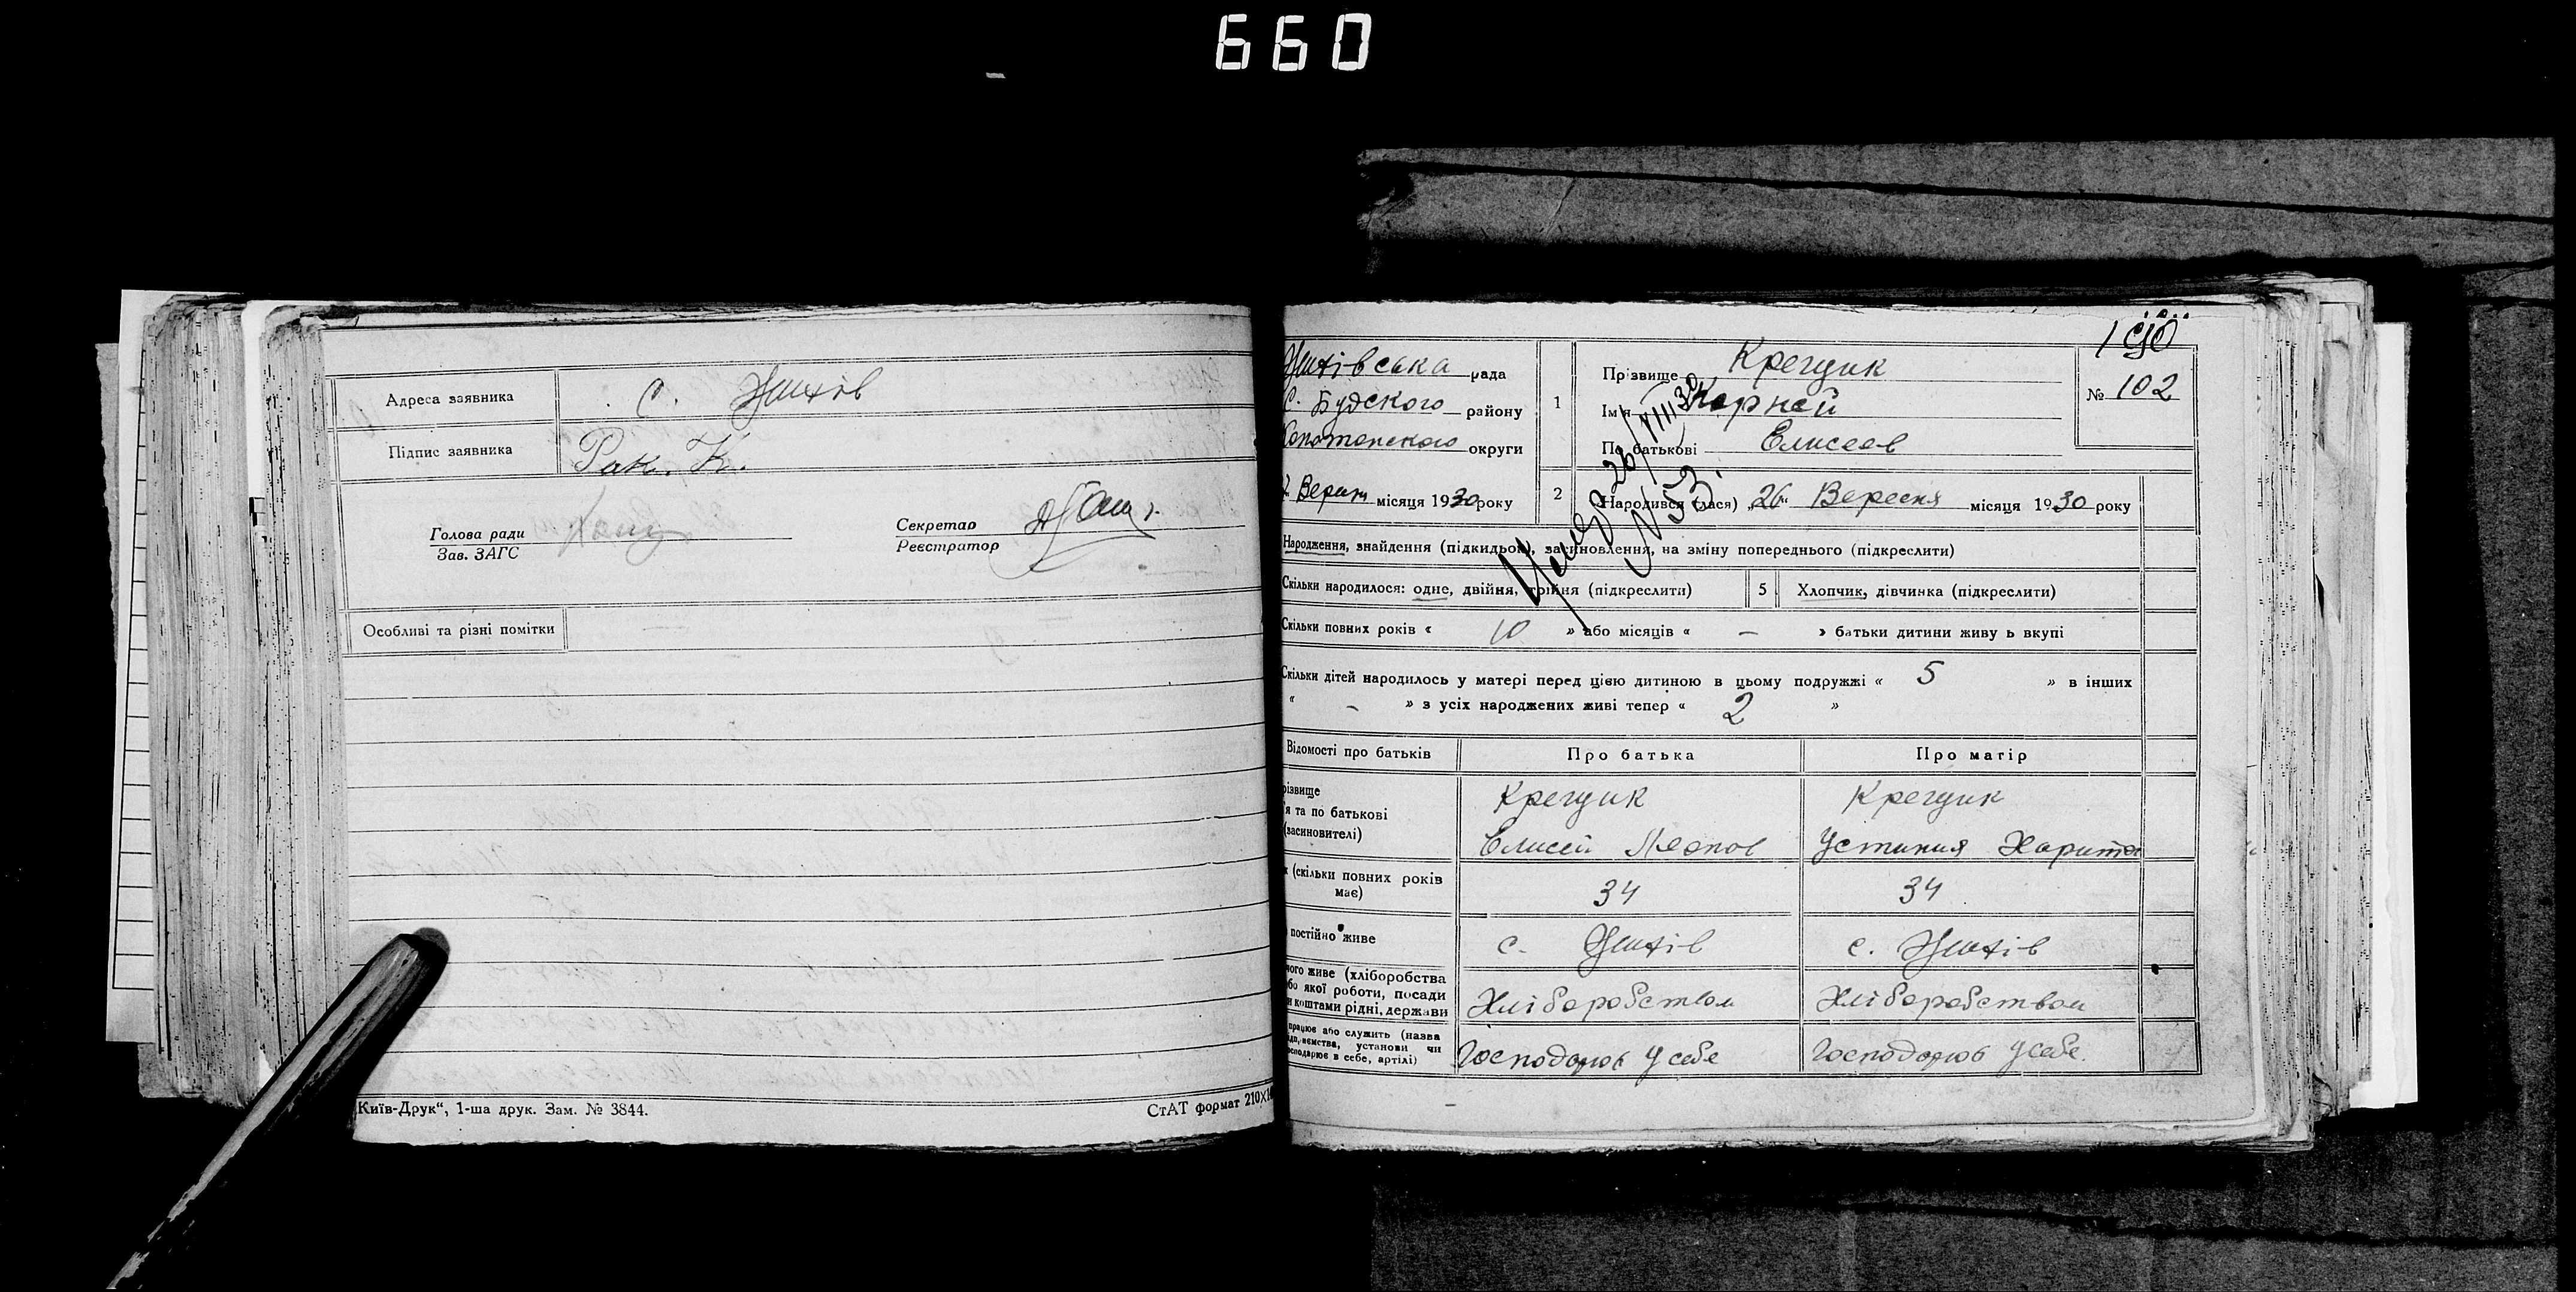 660
Адреса заявника
с.
Підпис заявника
Рак. К.
Голова ради
Зав. ЗАГС
Секретар
Реєстратор
Особливі та різні помітки
Київ-Друк“, 1-ша друк. Зам. № 3844.
СтАТ формат 210×
рада
С. Будского району
округи
місяця 1930 року
1
Прізвище
Ім'я Корней
По батькові Елисеев
№ 102
2
Народився (лася) „26“ Вересня місяця 1930 року
N 53.
Народження, знайдення (підкидьок), засиновлення, на зміну попереднього (підкреслити)
Скільки народилося: одне, двійня, трійня (підкреслити)
5 Хлопчик, дівчинка (підкреслити)
Скільки повних років « 10 » або місяців « – » батьки дитини живуть вкупі
Скільки дітей народилось у матері перед цією дитиною в цьому подружжі « 5 » в інших
« – » з усіх народжених живі тепер « 2 »
Відомості про батьків
Про батька
Про матір
різвище
я та по батькові
(засиновителі)
Елисей
Устиния Харито
(скільки повних років
має)
34
34
постійно живе
с.
с.
чого живе (хліборобства
бо якої роботи, посади
и коштами рідні, держави
Хліборобством
Хліборобством
працює або служить (назва
установи чи
сподарює в себе, артілі)
Господарюв у себе
Господарюв у себе.